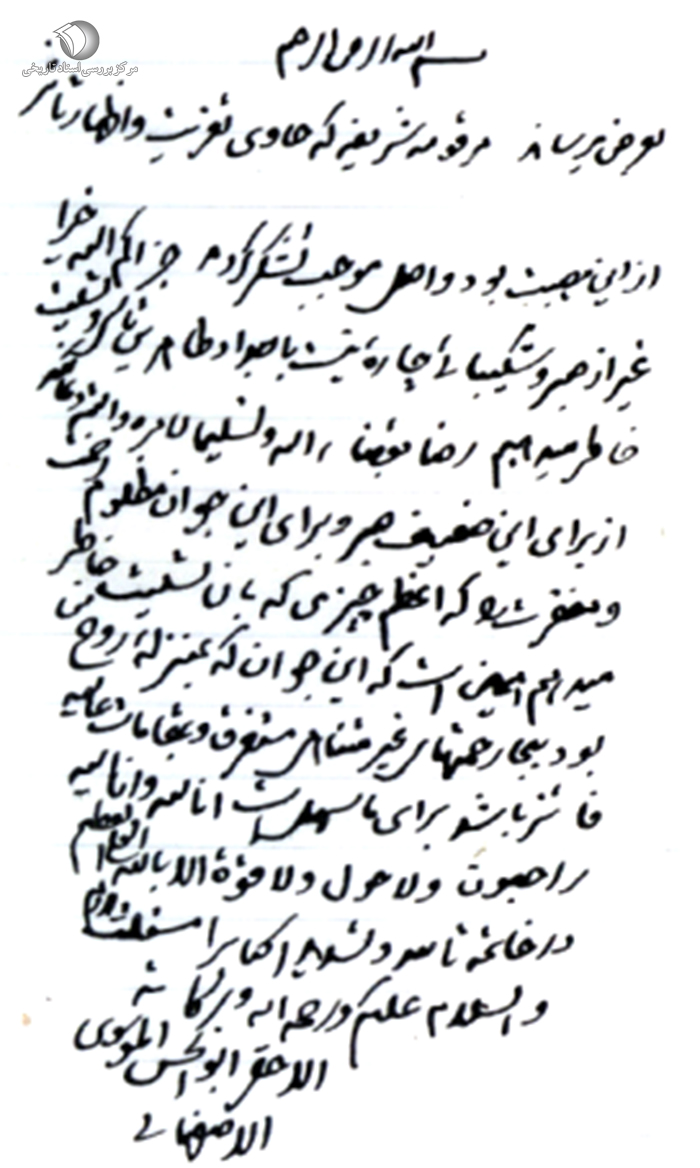 مرکز بررسی اسناد تاریخی
بسم الله الرحمن الرحیم
بعرض میرساند مرقومه شریفه که حاوی تعزیت و اظهار تاثر
از این مصیبت بود واصل موجب تشکر گردید جزاکم الله خیرا
غیر از صبر و شکیبائی چاره نیست باجداد طاهرین تاسی کرده تسلیت
خاطر میدهیم رضا بقضاء الله و تسلیما لامره
از برای این ضعیف صبر و برای این جوان مظلوم رحمت
و مغفرت را که اعظم چیزی که بآن تسلیت خاطر
میدهم همین است که این جوان که بمنزله روح من
بود ببحار رحمتهای غیر متناهی مستغرق و بمقامات عالیه
فائز باشد برای ما سهل است انا لله و انا الیه
راجعون ولا حول ولا قوة الا بالله العلی العظیم
در خاتمه تایید و تسدید آنجناب را مسئلت دارم
والسلام علیکم ورحمة الله وبرکاته
الاحقر ابوالحسن الموسوی
الاصفهانی